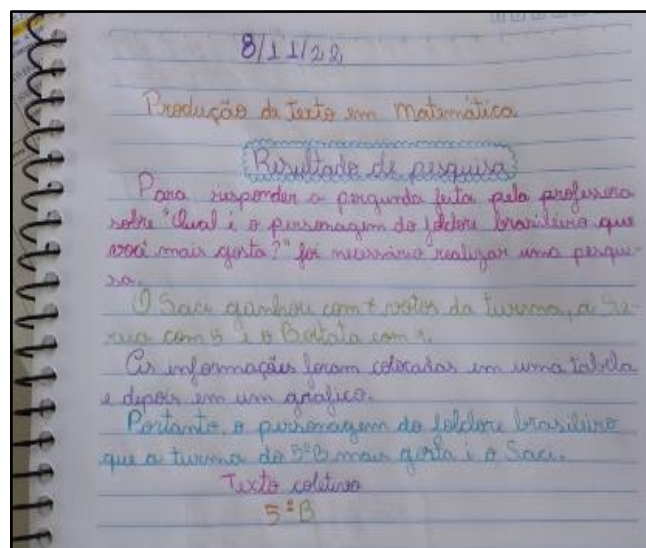 8/11/22
Produção de Texto em Matemática
Resultado de pesquisa
Para responder a pergunda feita pela professora
sobre "Qual é o personagem do folclore brasileiro que
você mais gosta?" foi necessário realizar uma pesqui-
sa.
O Saci ganhou com votos da turma, a Se-
reia com 5 e o Boitata com
As informações foram colocadas em uma tabela
e depois em um gráfico.
Portanto, o personagem do folclore brasileiro
que a turma do 5ºB mais gosta é o Saci.
Texto coletivo
5ºB